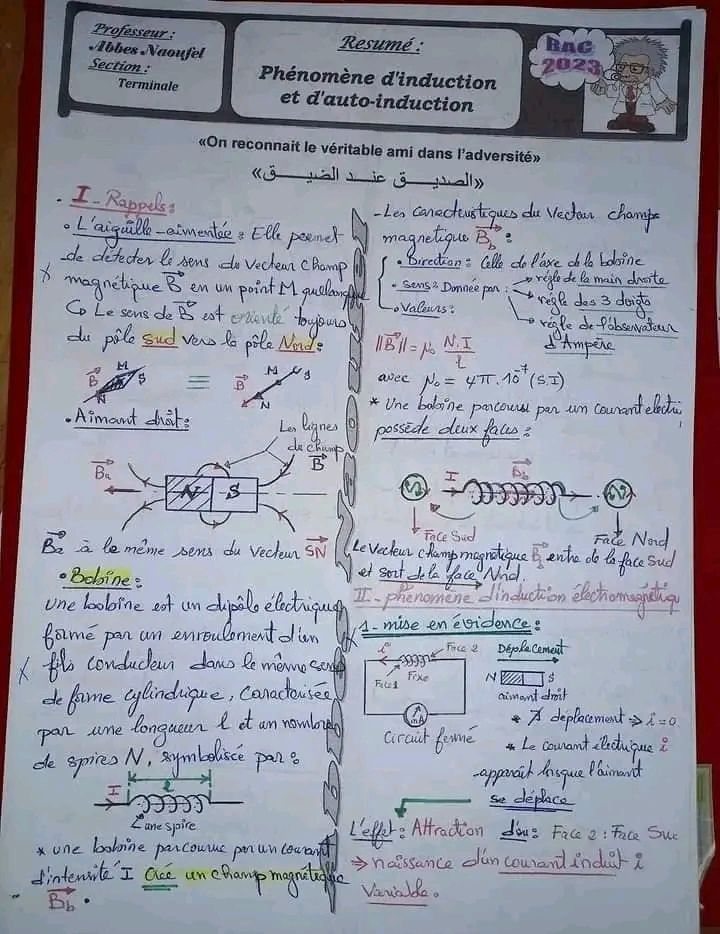 Professeur :
Abbes Naoufel
Section :
Terminale
Resumé :
Phénomène d'induction
et d'auto-induction
BAC
2023
«On reconnait le véritable ami dans l'adversité»
«الصديق عند الضيق»
I - Rappels :
• L'aiguille-aimentée : Elle permet
de détecter le sens du vecteur champ
magnétique B en un point M quelconque
Le sens de B est orienté toujours
du pôle Sud vers le pôle Nord :
B M S N ≡ B M S N
• Aimant droit :
Les lignes
du champ
B
Ba N S
Ba à le même sens du vecteur SN
• Bobine :
une bobine est un dipôle électrique
formé par un enroulement d'un
fils conducteur dans le même sens
de forme cylindrique, caractérisée
par une longueur l et un nombre
de spires N, symbolisée par :
l
I
une spire
* une bobine parcourue par un courant
d'intensité I Créé un champ magnétique
Bb •
- Les caractéristiques du vecteur champ
magnetique Bb :
• Direction : Celle de l'axe de la bobine
• Sens : Donnée par : → règle de la main droite
→ règle des 3 doigts
• Valeurs : → règle de l'observateur
d'Ampère
||B|| = μ₀ N.I / l
avec μ₀ = 4π.10⁻⁷ (S.I)
* Une bobine parcourue par un courant électri
possède deux faces :
S I Bb N
Face Sud Face Nord
Le vecteur champ magnétique Bb entre de la face Sud
et sort de la face Nord
II - phénomène d'induction électromagnétiqu
1 - mise en évidence :
i Face 2 Déplacement
Face 1 Fixe N S
aimant droit
mA
Circuit fermé
* ∄ déplacement ⇒ i = 0
* Le courant électrique i
apparait lorsque l'aimant
se déplace
L'effet : Attraction d'où : Face 2 : Face Sud
⇒ naissance d'un courant induit i
Variable •